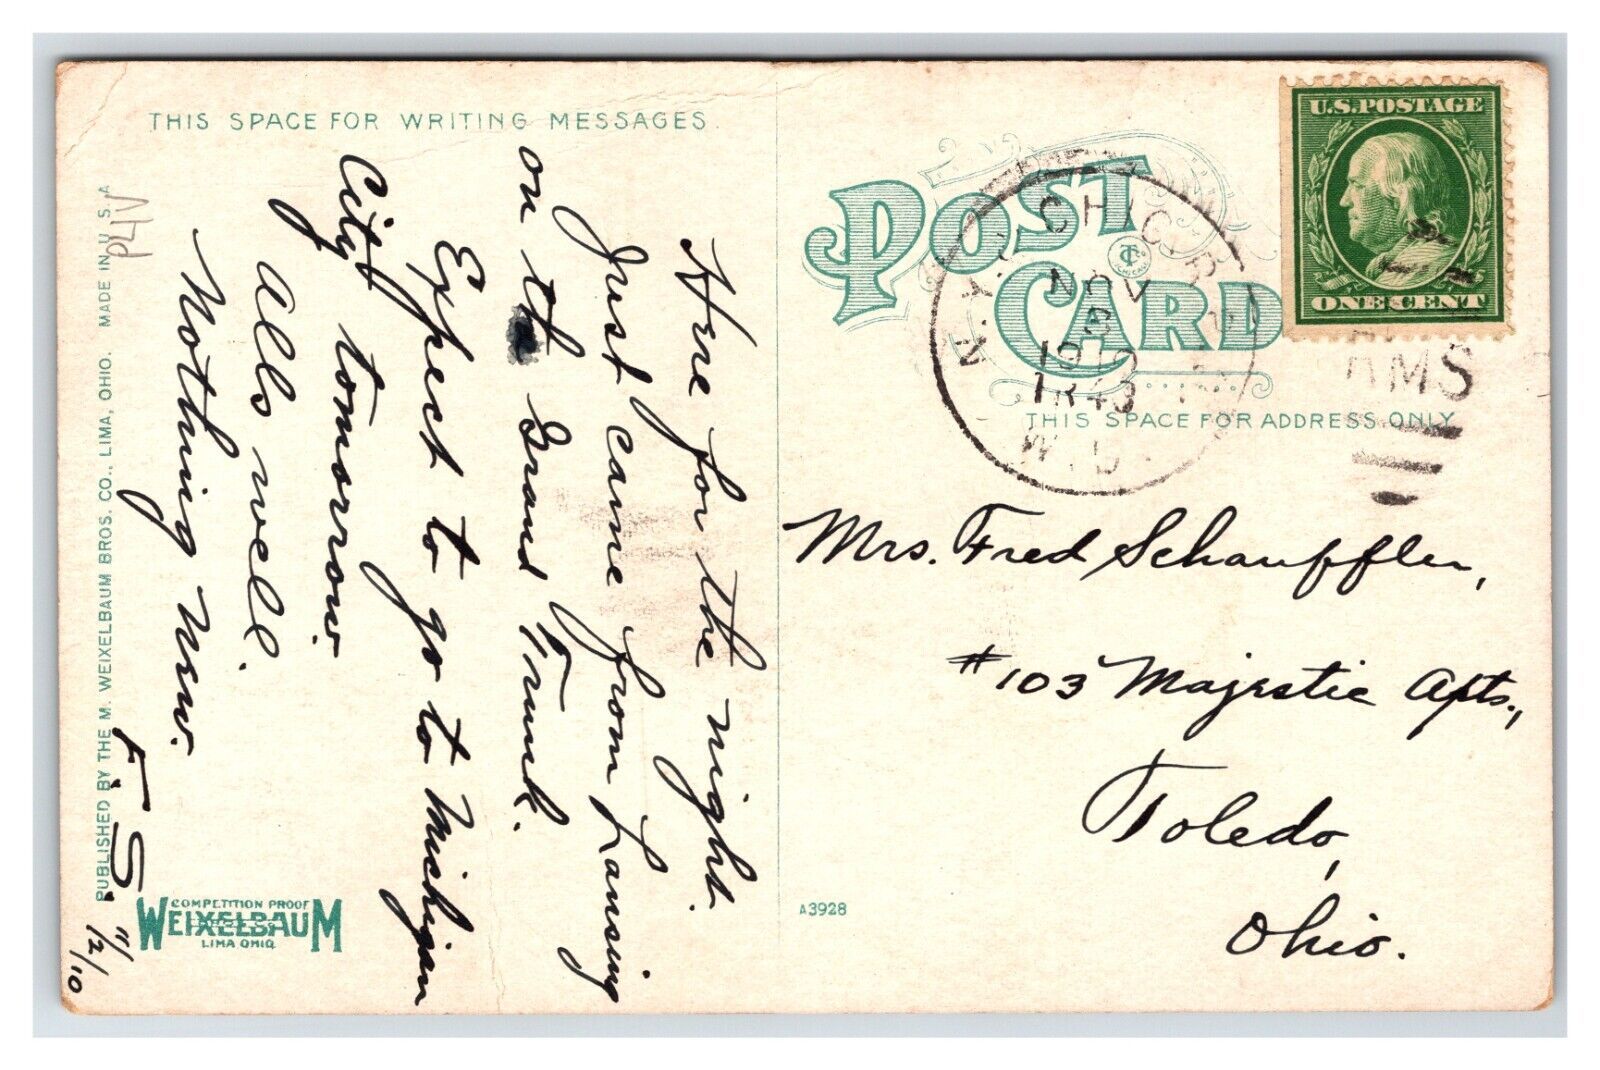 THIS SPACE FOR WRITING MESSAGES
Here for the night.
Just came from Lansing
on the Grand Trunk.
Expect to go to Michigan
City tomorrow.
All's well.
Nothing new.
F. S.
11/2/10
PUBLISHED BY THE M. WEIXELBAUM BROS. CO., LIMA, OHIO. MADE IN U.S.A
P4IV
COMPETITION PROOF
WEIXELBAUM
LIMA OHIO
A3928
POST
CARD
THIS SPACE FOR ADDRESS ONLY
N.Y. & CHIC. R.P.O.
NOV
3
1910
TR 43
W.D.
RMS
U.S. POSTAGE
ONE CENT
Mrs. Fred Schauffler,
#103 Majestic Apts.,
Toledo,
Ohio.